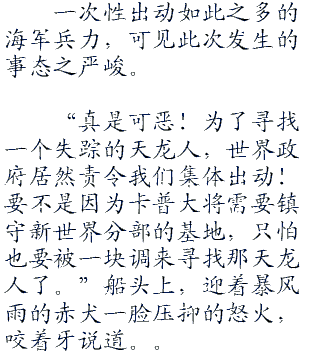 一次性出动如此之多的
海军兵力，可见此次发生的
事态之严峻。
“真是可恶！为了寻找
一个失踪的天龙人，世界政
府居然责令我们集体出动！
要不是因为卡普大将需要镇
守新世界分部的基地，只怕
也要被一块调来寻找那天龙
人了。”船头上，迎着暴风
雨的赤犬一脸压抑的怒火，
咬着牙说道。。